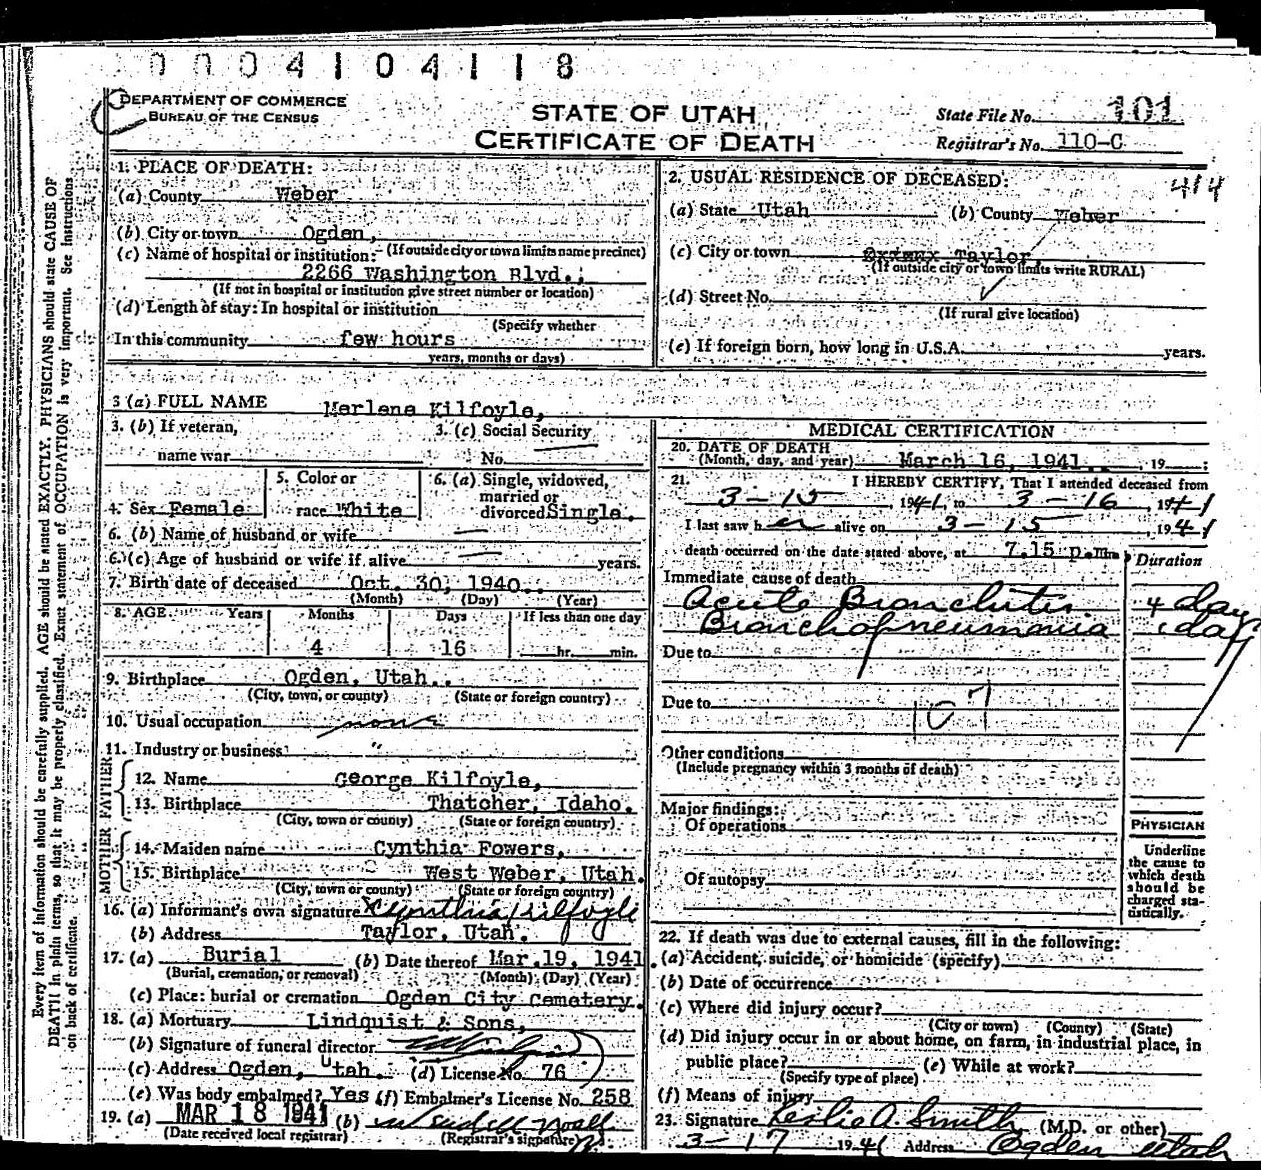 0004104118
DEPARTMENT OF COMMERCE
BUREAU OF THE CENSUS
STATE OF UTAH
CERTIFICATE OF DEATH
State File No. 101
Registrar's No. 110-C
414
Every item of information should be carefully supplied. AGE should be stated EXACTLY. PHYSICIANS should state CAUSE OF
DEATH in plain terms, so that it may be properly classified. Exact statement of OCCUPATION is very important. See instructions
on back of certificate.
1. PLACE OF DEATH:
(a) County Weber
(b) City or town Ogden,
(If outside city or town limits name precinct)
(c) Name of hospital or institution:
2266 Washington Blvd.,
(If not in hospital or institution give street number or location)
(d) Length of stay: In hospital or institution
(Specify whether
In this community few hours
years, months or days)
2. USUAL RESIDENCE OF DECEASED:
(a) State Utah (b) County Weber
(c) City or town Taylor,
(If outside city or town limits write RURAL)
(d) Street No.
(If rural give location)
(e) If foreign born, how long in U.S.A. years.
3 (a) FULL NAME Merlene Kilfoyle,
3. (b) If veteran, 3. (c) Social Security
name war No.
4. Sex Female
5. Color or
race White
6. (a) Single, widowed,
married or
divorced Single.
6. (b) Name of husband or wife
6. (c) Age of husband or wife if alive years.
7. Birth date of deceased Oct. 30, 1940.
(Month) (Day) (Year)
8. AGE Years Months Days If less than one day
4 16 hr. min.
9. Birthplace Ogden, Utah.
(City, town, or county) (State or foreign country)
10. Usual occupation none
11. Industry or business "
FATHER
12. Name George Kilfoyle,
13. Birthplace Thatcher, Idaho.
(City, town or county) (State or foreign country)
MOTHER
14. Maiden name Cynthia Fowers,
15. Birthplace West Weber, Utah.
(City, town or county) (State or foreign country)
16. (a) Informant's own signature X Cynthia Kilfoyle
(b) Address Taylor, Utah.
17. (a) Burial (b) Date thereof Mar. 19, 1941
(Burial, cremation, or removal) (Month) (Day) (Year)
(c) Place: burial or cremation Ogden City Cemetery.
18. (a) Mortuary Lindquist & Sons,
(b) Signature of funeral director
(c) Address Ogden, Utah. (d) License No. 76
(e) Was body embalmed? Yes (f) Embalmer's License No. 258
19. (a) MAR 18 1941 (b)
(Date received local registrar) (Registrar's signature)
MEDICAL CERTIFICATION
20. DATE OF DEATH
(Month, day, and year) March 16, 1941. , 19 ;
21. I HEREBY CERTIFY, That I attended deceased from
3-15 , 1941, to 3-16 , 1941
I last saw her alive on 3-15 , 1941
death occurred on the date stated above, at 7.15 p.m.
Duration
Immediate cause of death
Acute Bronchitis. 4 day
Bronchopneumonia 1 day
Due to
Due to 107
Other conditions
(Include pregnancy within 3 months of death)
Major findings:
Of operations
Of autopsy
PHYSICIAN
Underline
the cause to
which death
should be
charged sta-
tistically.
22. If death was due to external causes, fill in the following:
(a) Accident, suicide, or homicide (specify)
(b) Date of occurrence
(c) Where did injury occur?
(City or town) (County) (State)
(d) Did injury occur in or about home, on farm, in industrial place, in
public place? (e) While at work?
(Specify type of place)
(f) Means of injury
23. Signature Leslie A. Smith (M.D. or other)
3-17 1941 Address Ogden Utah